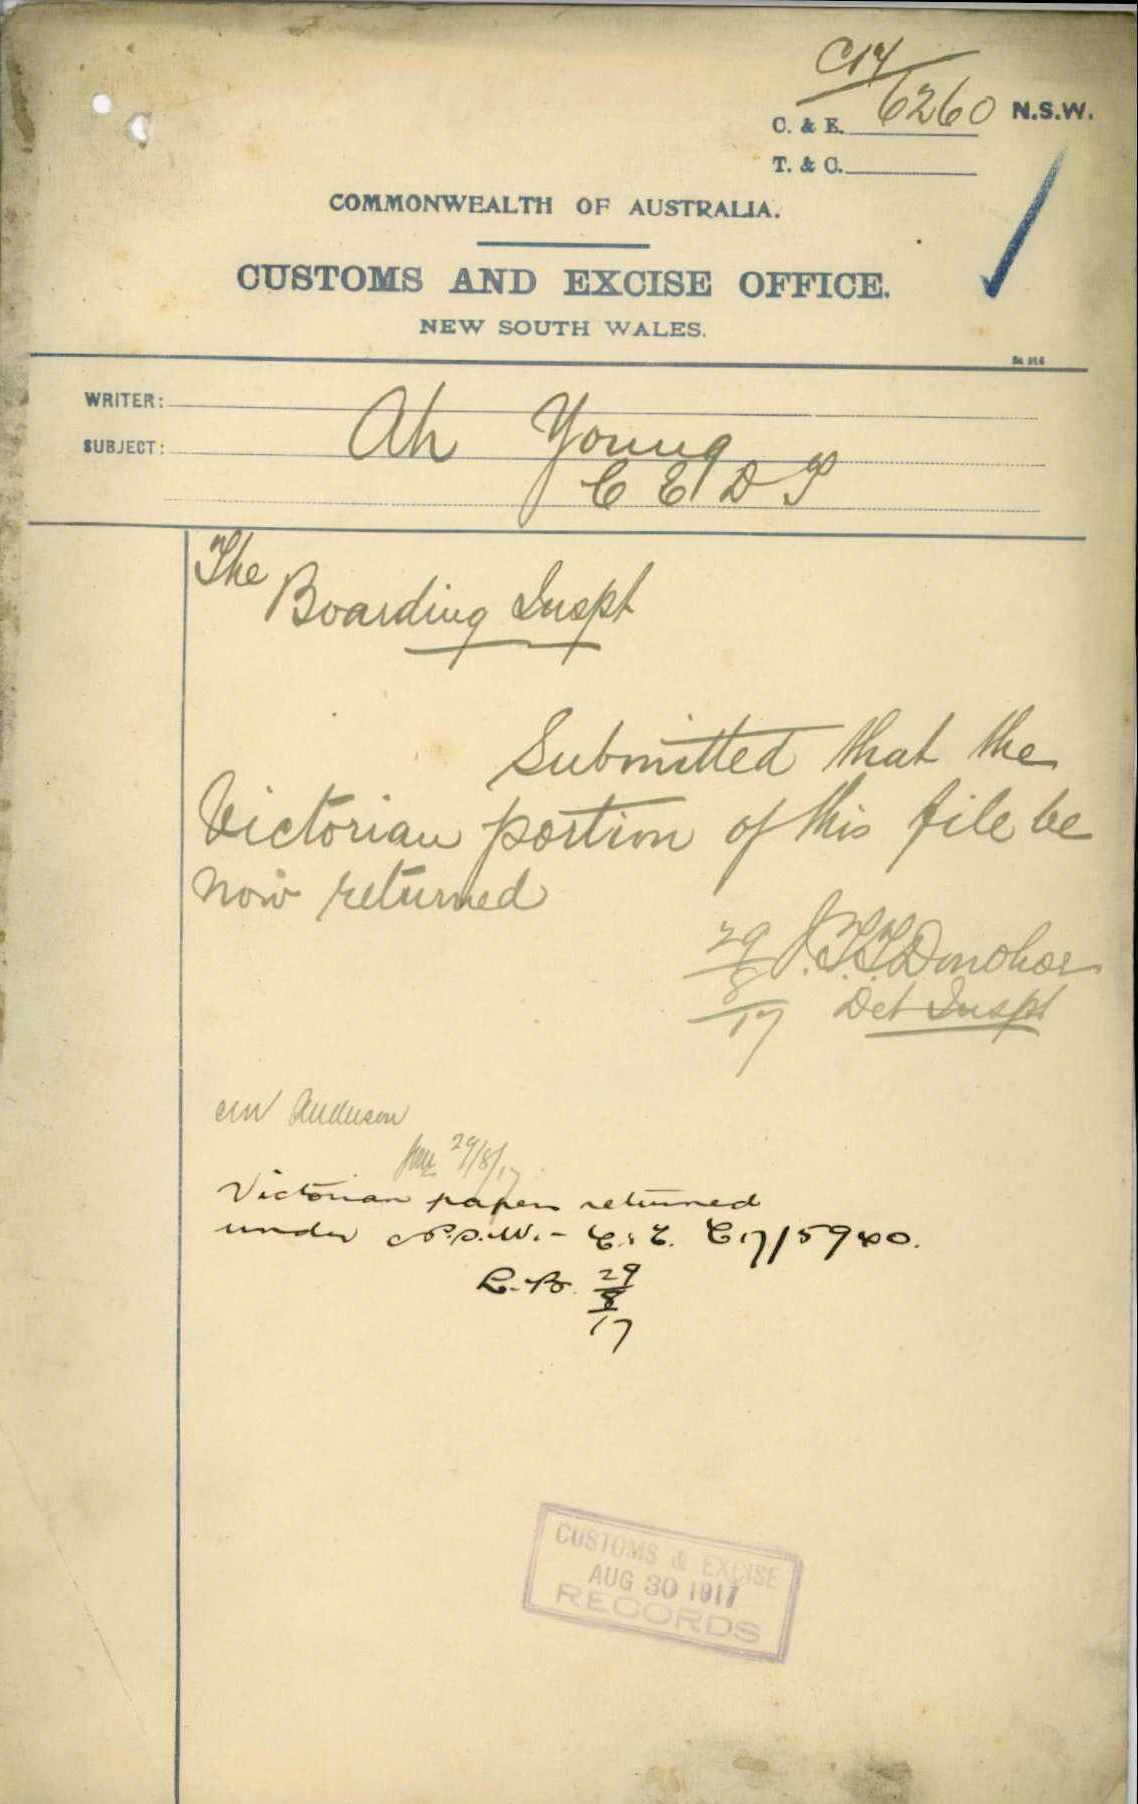 C17
6260 N.S.W.
C. & E.
T. & C.
COMMONWEALTH OF AUSTRALIA.
CUSTOMS AND EXCISE OFFICE.
NEW SOUTH WALES.
WRITER:
SUBJECT: Ah Young
C E D T
The
Boarding Inspt
Submitted that the
Victorian portion of this file be
now returned
29/8/17 J.T.T. Donohoe
Det Inspt
Anderson
29/8/17
Victorian papers returned
under N.S.W. - C. & E. C17/5940.
L.B. 29/8/17
CUSTOMS & EXCISE
AUG 30 1917
RECORDS